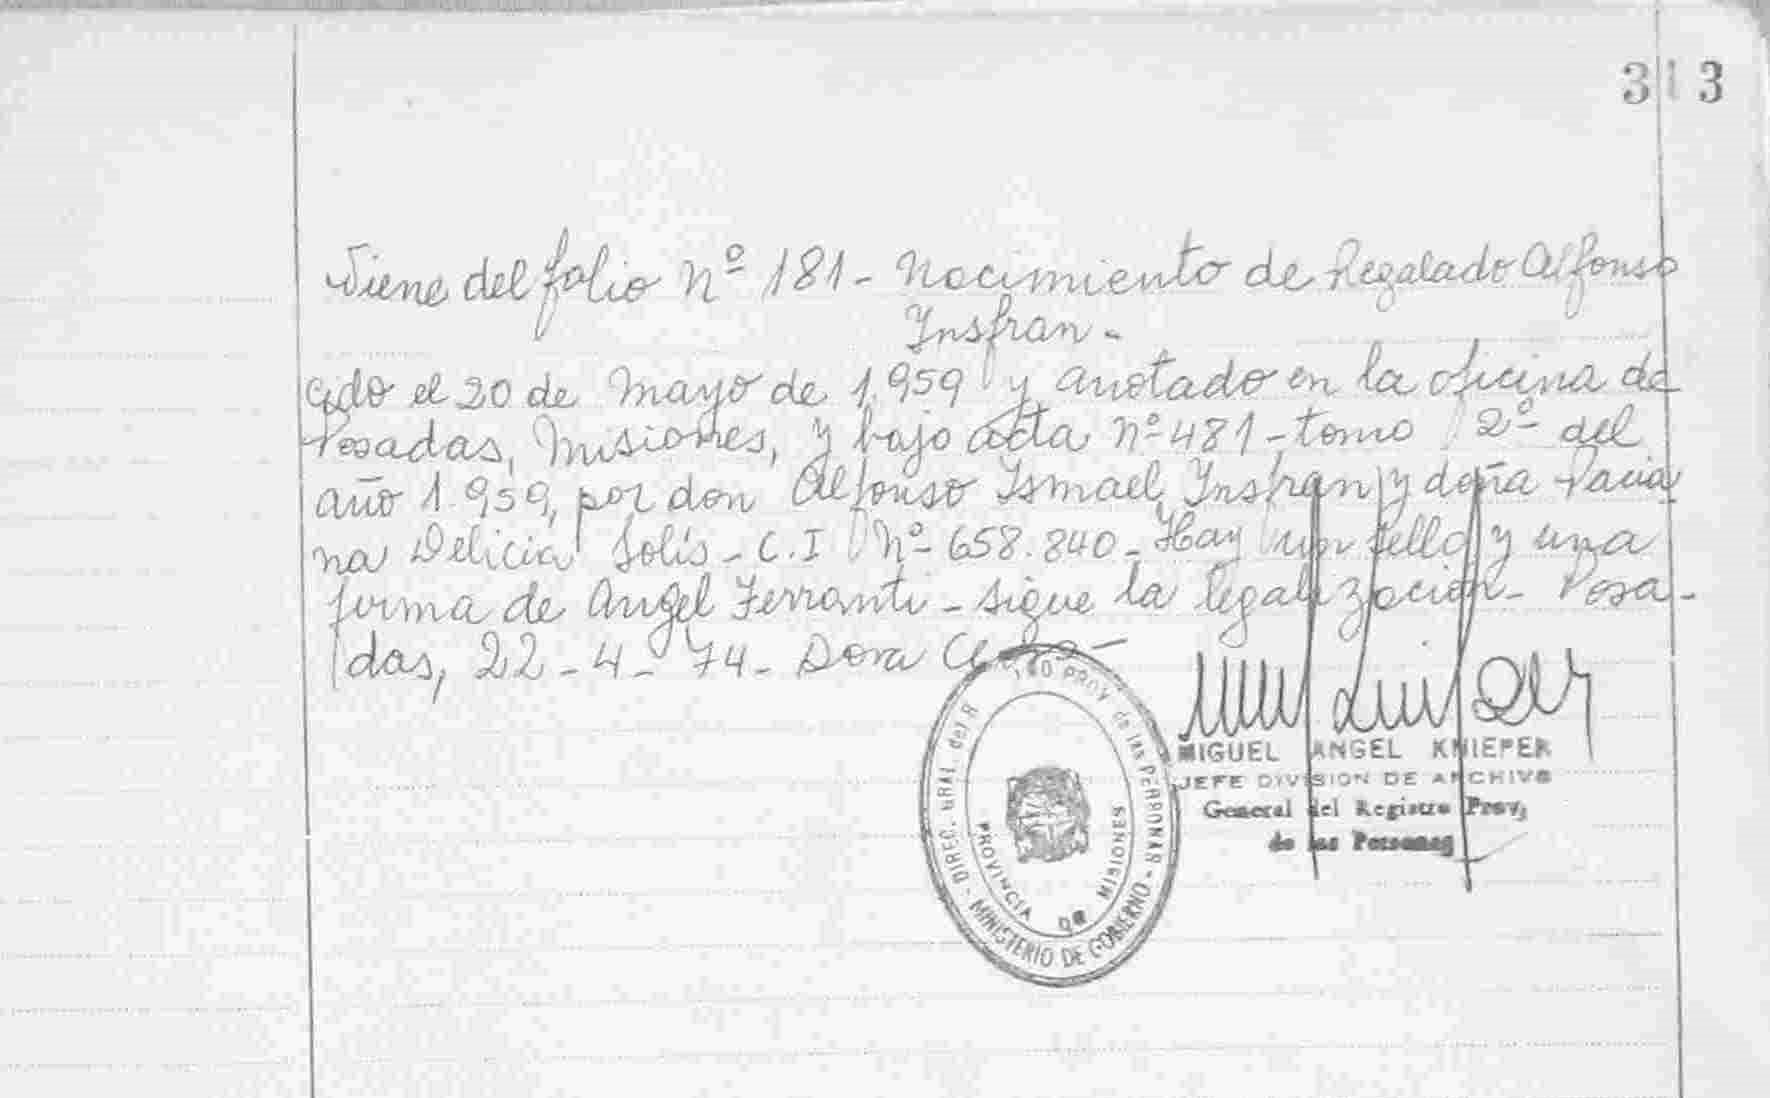 313
Viene del folio Nº 181 - Nacimiento de Regalado Alfonso
Insfran -
cido el 20 de Mayo de 1.959 y anotado en la oficina de
Posadas, Misiones, y bajo acta nº 481 - tomo 2º del
año 1.959, por don Alfonso Ismael Insfran y doña Pacia
na Delicia Solís - C.I Nº 658.840 - Hay un sello y una
firma de Angel Ferranti - sigue la legalización - Posa-
das, 22-4-74- Dora
DIREC. GRAL. del R PROV de las PERSONAS - MINISTERIO DE GOBIERNO -
PROVINCIA DE MISIONES
MIGUEL ANGEL KNIEPER
JEFE DIVISION DE ARCHIVO
General del Registro Prov,
de las Personas